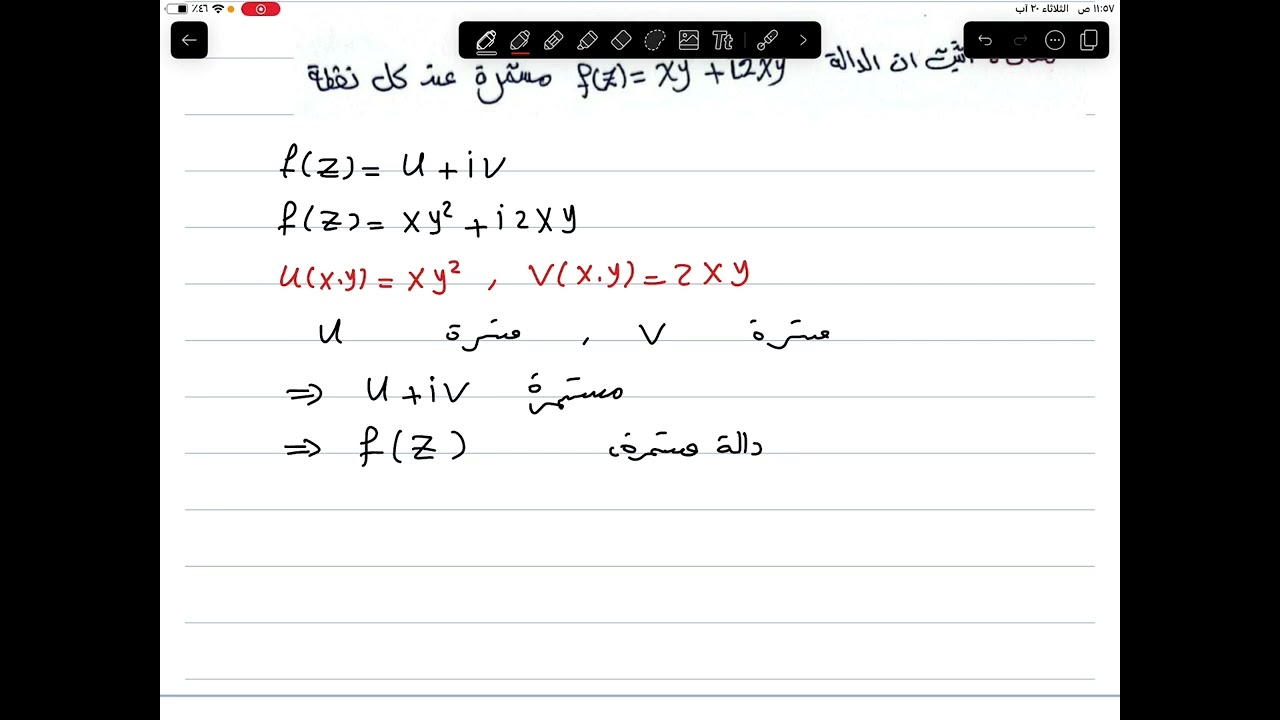 ١١:٥٧ ص الثلاثاء ٢٠ آب
٪٤٦
Tt
اثبت ان الدالة f(z) = xy + i2xy مستمرة عند كل نقطة
f(z) = u + iv
f(z) = xy² + i2xy
u(x.y) = xy² , v(x.y) = 2xy
u مستمرة , v مستمرة
⇒ u + iv مستمرة
⇒ f(z) دالة مستمرة